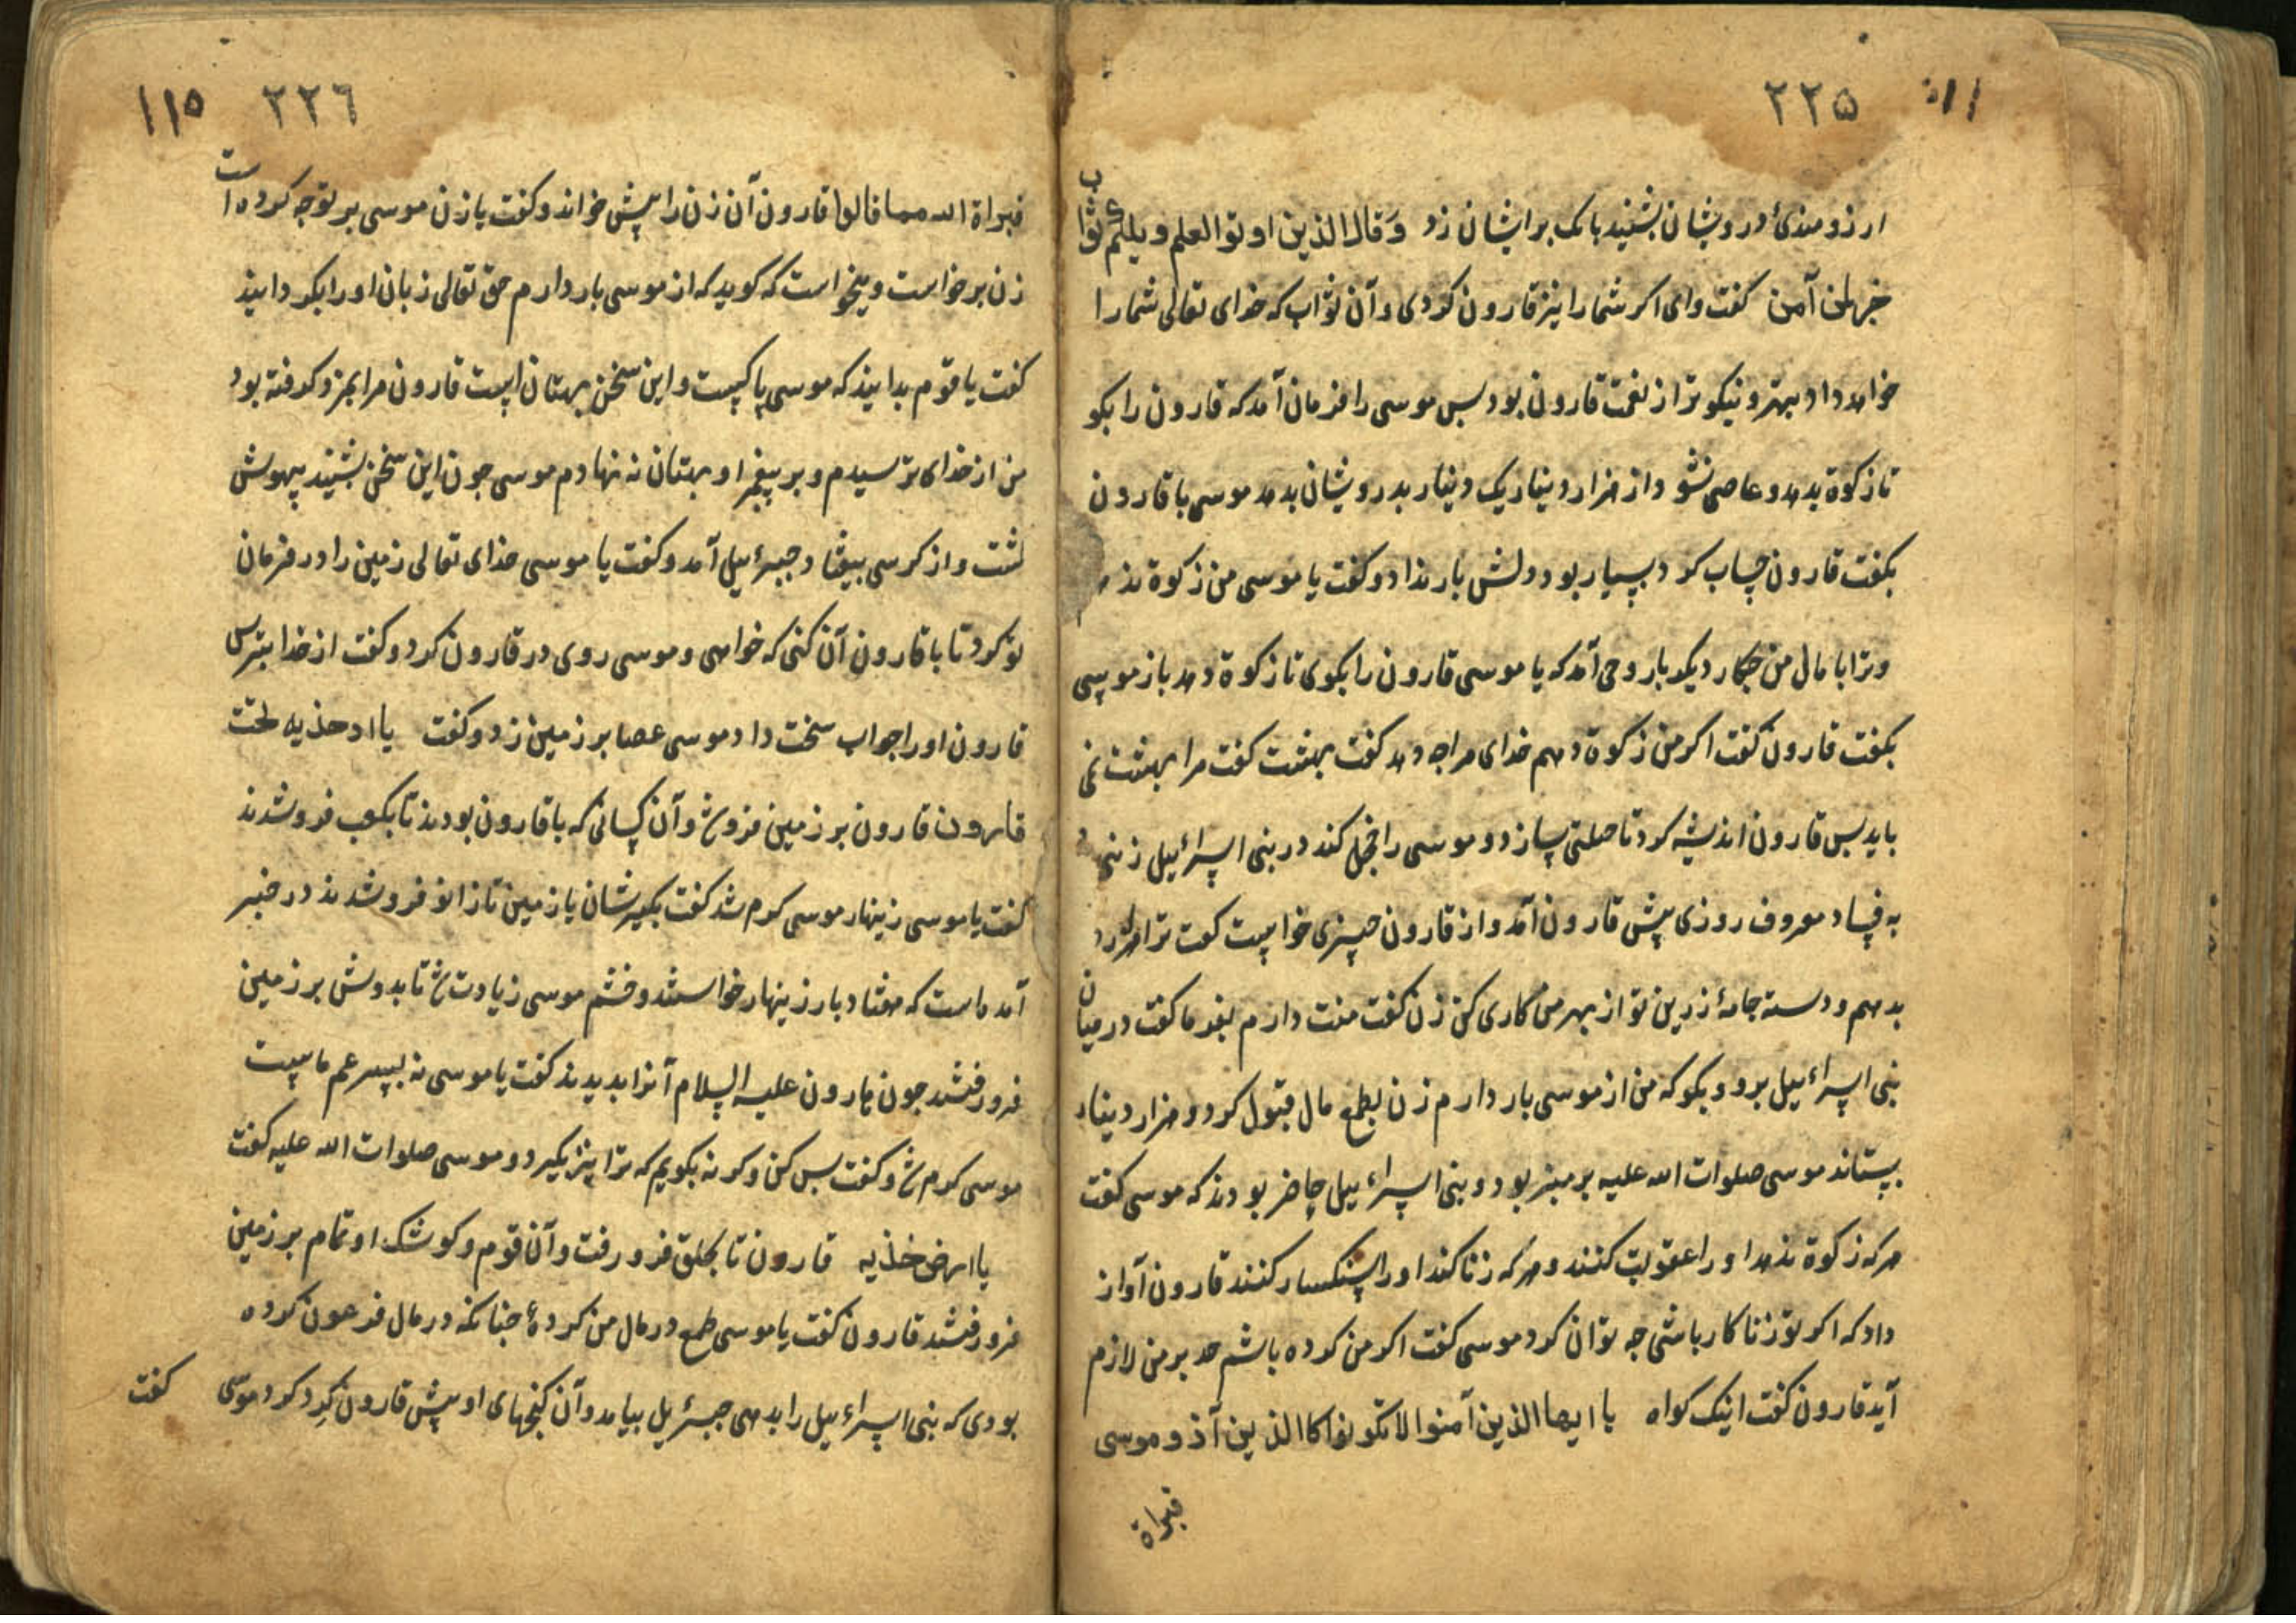 ٢٢٥
ارزومندئ درویشان بشنید بانک برایشان زد وَقال الذین اوتوا العلم ویلکم ثواب
خیر لمن آمن کفت وای اکر شما را نیز قارون کردی و آن ثواب که خدای تعالی شما را
خواهد داد بهتر و نیکوتر از نعمت قارون بود بس موسی را فرمان آمد که قارون را بکو
تا زکوة بدهد و عاصی نشود از هزار دینار یک دینار بدرویشان بدهد موسی با قارون
بکفت قارون حساب کرد بسیار بود دلش بار نداد و کفت یا موسی من زکوة ندهم
و ترا با مال من جکار دیکر بار وحی آمد که یا موسی قارون را بکوی تا زکوة دهد باز موسی
بکفت قارون کفت اکر من زکوة دهم خدای مرا جه دهد کفت بهشت کفت مرا بهشت نمی
باید بس قارون اندیشه کرد تا حیلتی سازد و موسی را خجل کند در بنی اسرائیل زنی
به فساد معروف روزی پیش قارون آمد و از قارون چیزی خواست کفت ترا هزار
بدهم و دسته جامهٔ زرین تو از بهر من کاری کن زن کفت منت دارم بفرما کفت در میان
بنی اسراءیل برو و بکو که من از موسی بار دارم زن بطمع مال قبول کرد و هزار دینار
بستاند موسی صلوات الله علیه بر منبر بود و بنی اسراءیل حاضر بودند که موسی کفت
هرکه زکوة ندهد او را عقوبت کنند و هرکه زنا کند او را سنکسار کنند قارون آواز
داد که اکر تو زناکار باشی جه توان کرد موسی کفت اکر من کرده باشم حد بر من لازم
آید قارون کفت اینک کواه یا ایها الذین آمنوا لا تکونوا کاالذین آذو موسی
فبراة
١١٥ ٢٢٦
فبراة الله مما قالوا قارون آن زن را پیش خواند و کفت یا زن موسی بر تو جه کرده است
زن برخواست و میخواست که کوید که از موسی بار دارم حق تعالی زبان او را بکردانید
کفت یا قوم بدانید که موسی پاکیست و این سخن بهتان است قارون مرا بمزد کرفته بود
من از خدای ترسیدم و بر پیغمبر او بهتان نه نهادم موسی جون این سخن بشنید بیهوش
کشت و از کرسی بیفتاد جبرءیل آمد و کفت یا موسی خدای تعالی زمین را در فرمان
تو کرد تا با قارون آن کنی که خواهی و موسی روی در قارون کرد و کفت از خدا بترس
قارون او را جواب سخت داد موسی عصا بر زمین زد و کفت یا ارض خذیه
قارون بر زمین فرو شد و آن کسانی که با قارون بودند تا بکعب فرو شدند
کفت یا موسی زینهار موسی کرم شد کفت بکیرشان یا زمین تا زانو فرو شدند در خبر
آمده است که هفتاد بار زینهار خواستند و خشم موسی زیادت شد تا بدوش بر زمین
فرو رفتند جون هارون علیه السلام آنرا بدیدند کفت یا موسی نه بسر عم ماست
موسی کرم شد و کفت بس کن وکرنه بکویم که ترا نیز بکیرد و موسی صلوات الله علیه کفت
یا ارض خذیه قارون تا بحلق فرو رفت و آن قوم و کوشک او تمام بر زمین
فرو رفتند قارون کفت یا موسی طمع در مال من کردهٔ جنانکه در مال فرعون کرده
بودی که بنی اسراءیل را بدهی جبرءیل بیامد و آن کنجهای او پیش قارون کرد کرد موسی کفت